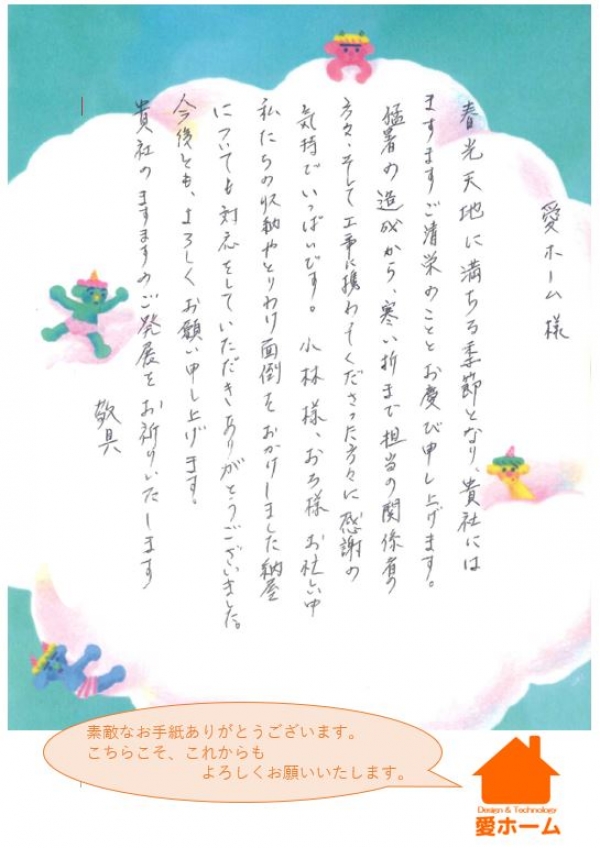 愛ホーム様
春光天地に満ちる季節となり、貴社には
ますますご清栄のこととお慶び申し上げます。
猛暑の造成から、寒い折まで担当の関係者の
方々、そして工事に携わてくださった方々に感謝の
気持でいっぱいです。小林様、おち様お忙しい中
私たちの収納やとりわけ面倒をおかけしました納屋
についても対応をしていただきありがとうございました。
今後とも、よろしくお願い申し上げます。
貴社のますますのご発展をお祈りいたします
敬具
素敵なお手紙ありがとうございます。
こちらこそ、これからも
よろしくお願いいたします。
Design & Technology
愛ホーム